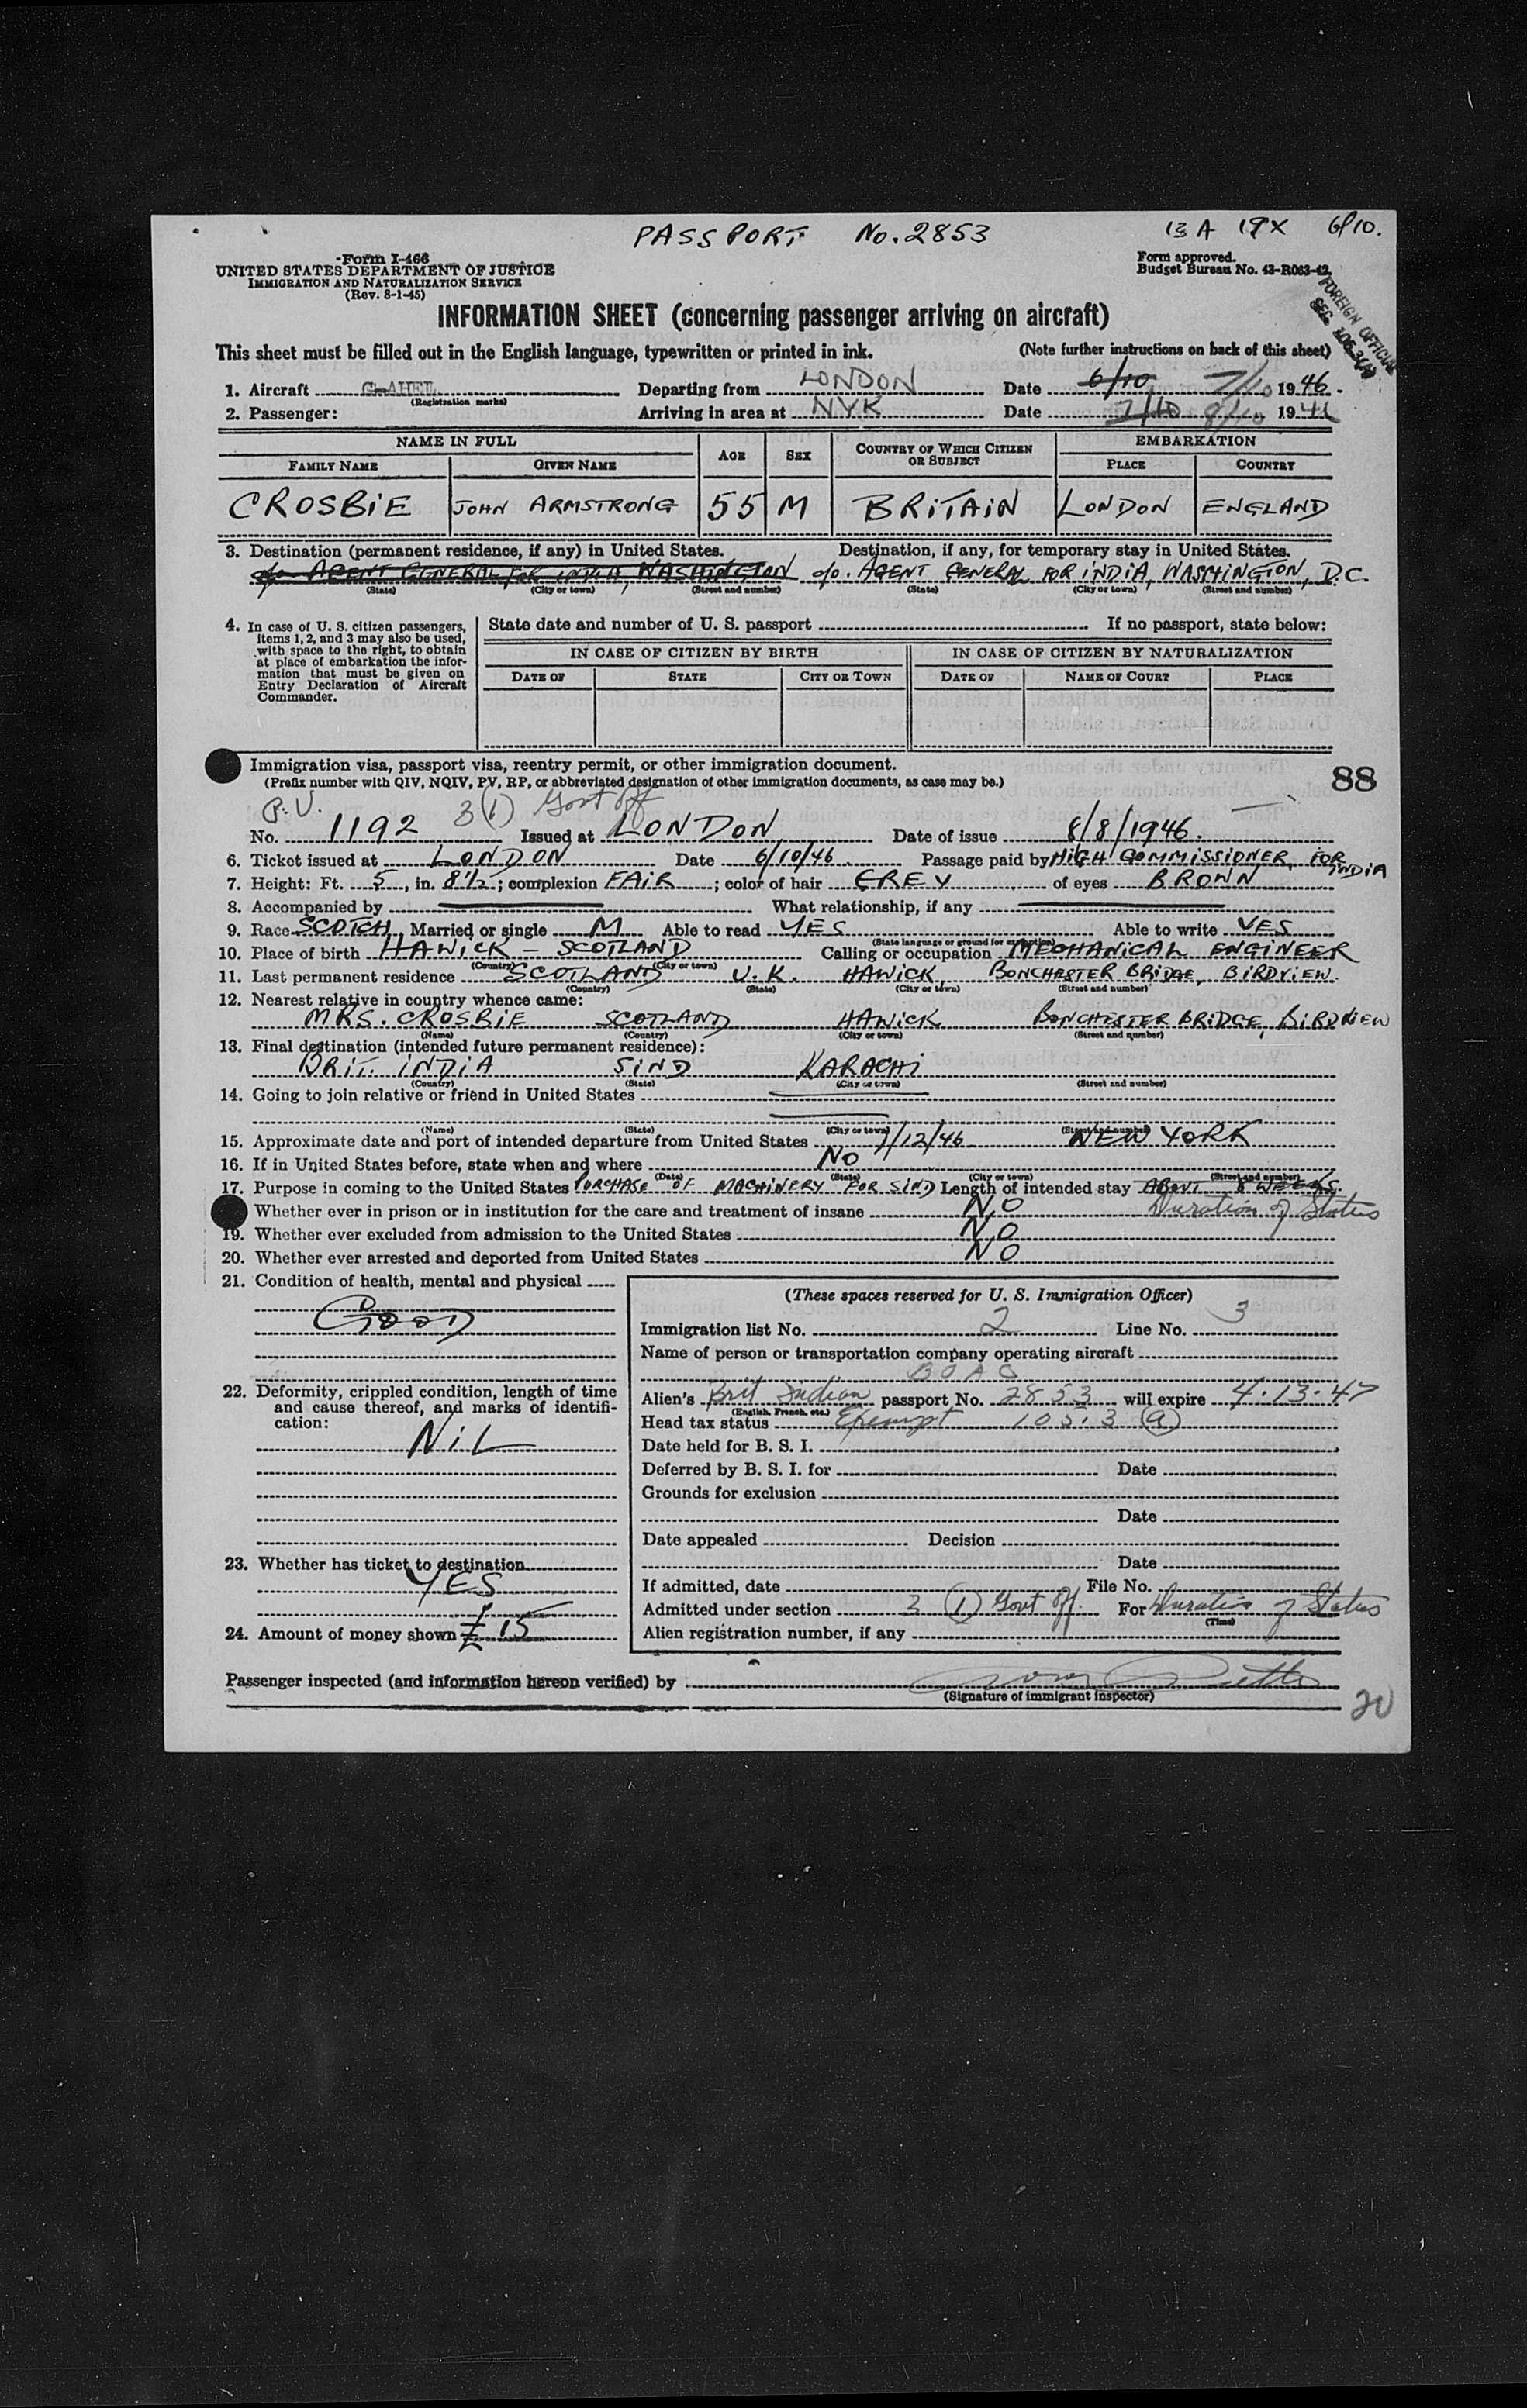 PASSPORT No. 2853 13 A 19X 6/10.
Form I-466
UNITED STATES DEPARTMENT OF JUSTICE
IMMIGRATION AND NATURALIZATION SERVICE
(Rev. 8-1-45)
Form approved.
Budget Bureau No. 43-R063-42.
FOREIGN OFFICIAL
SEC.
INFORMATION SHEET (concerning passenger arriving on aircraft)
This sheet must be filled out in the English language, typewritten or printed in ink. (Note further instructions on back of this sheet)
1. Aircraft G-AHEL Departing from LONDON Date 6/10 7/10 1946.
(Registration marks)
2. Passenger: Arriving in area at NYK Date 7/10 8/10 1946
NAME IN FULL AGE SEX COUNTRY OF WHICH CITIZEN OR SUBJECT EMBARKATION
FAMILY NAME GIVEN NAME PLACE COUNTRY
CROSBIE JOHN ARMSTRONG 55 M BRITAIN LONDON ENGLAND
3. Destination (permanent residence, if any) in United States. Destination, if any, for temporary stay in United States.
c/o AGENT GENERAL FOR INDIA, WASHINGTON c/o. AGENT GENERAL FOR INDIA, WASHINGTON, D.C.
(State) (City or town) (Street and number) (State) (City or town) (Street and number)
4. In case of U. S. citizen passengers, items 1, 2, and 3 may also be used, with space to the right, to obtain at place of embarkation the information that must be given on Entry Declaration of Aircraft Commander.
State date and number of U. S. passport If no passport, state below:
IN CASE OF CITIZEN BY BIRTH IN CASE OF CITIZEN BY NATURALIZATION
DATE OF STATE CITY OR TOWN DATE OF NAME OF COURT PLACE
Immigration visa, passport visa, reentry permit, or other immigration document.
(Prefix number with QIV, NQIV, PV, RP, or abbreviated designation of other immigration documents, as case may be.)
88
P.V. 3 (1) Govt Off
No. 1192 Issued at LONDON Date of issue 8/8/1946.
6. Ticket issued at LONDON Date 6/10/46. Passage paid by HIGH COMMISSIONER, FOR INDIA
7. Height: Ft. 5, in. 8½; complexion FAIR; color of hair GREY of eyes BROWN
8. Accompanied by What relationship, if any
9. Race SCOTCH, Married or single M Able to read YES Able to write YES
(State language or ground for exemption)
10. Place of birth HAWICK - SCOTLAND Calling or occupation MECHANICAL ENGINEER
(Country) (City or town)
11. Last permanent residence SCOTLAND U.K. HAWICK, BONCHESTER BRIDGE, BIRDVIEW.
(Country) (State) (City or town) (Street and number)
12. Nearest relative in country whence came:
MRS. CROSBIE SCOTLAND HAWICK BONCHESTER BRIDGE, BIRDVIEW
(Name) (Country) (City or town) (Street and number)
13. Final destination (intended future permanent residence):
BRIT. INDIA SIND KARACHI
(Country) (State) (City or town) (Street and number)
14. Going to join relative or friend in United States
(Name) (State) (City or town) (Street and number)
15. Approximate date and port of intended departure from United States 7/12/46 NEW YORK
16. If in United States before, state when and where NO
(Date) (State) (City or town) (Street and number)
17. Purpose in coming to the United States PURCHASE OF MACHINERY FOR SIND Length of intended stay ABOUT 8 WEEKS.
Duration of Status
Whether ever in prison or in institution for the care and treatment of insane NO
19. Whether ever excluded from admission to the United States NO
20. Whether ever arrested and deported from United States NO
21. Condition of health, mental and physical
GOOD
22. Deformity, crippled condition, length of time and cause thereof, and marks of identification:
NIL
23. Whether has ticket to destination
YES
24. Amount of money shown £15
(These spaces reserved for U. S. Immigration Officer)
Immigration list No. 2 Line No. 3
Name of person or transportation company operating aircraft
BOAC
Alien's Brit Indian passport No. 2853 will expire 4-13-47
(English, French, etc.)
Head tax status Exempt 105.3 (a)
Date held for B. S. I.
Deferred by B. S. I. for Date
Grounds for exclusion
Date
Date appealed Decision
Date
If admitted, date File No.
Admitted under section 3 (1) Govt Off. For Duration of Status
(Time)
Alien registration number, if any
Passenger inspected (and information hereon verified) by
(Signature of immigrant inspector)
20